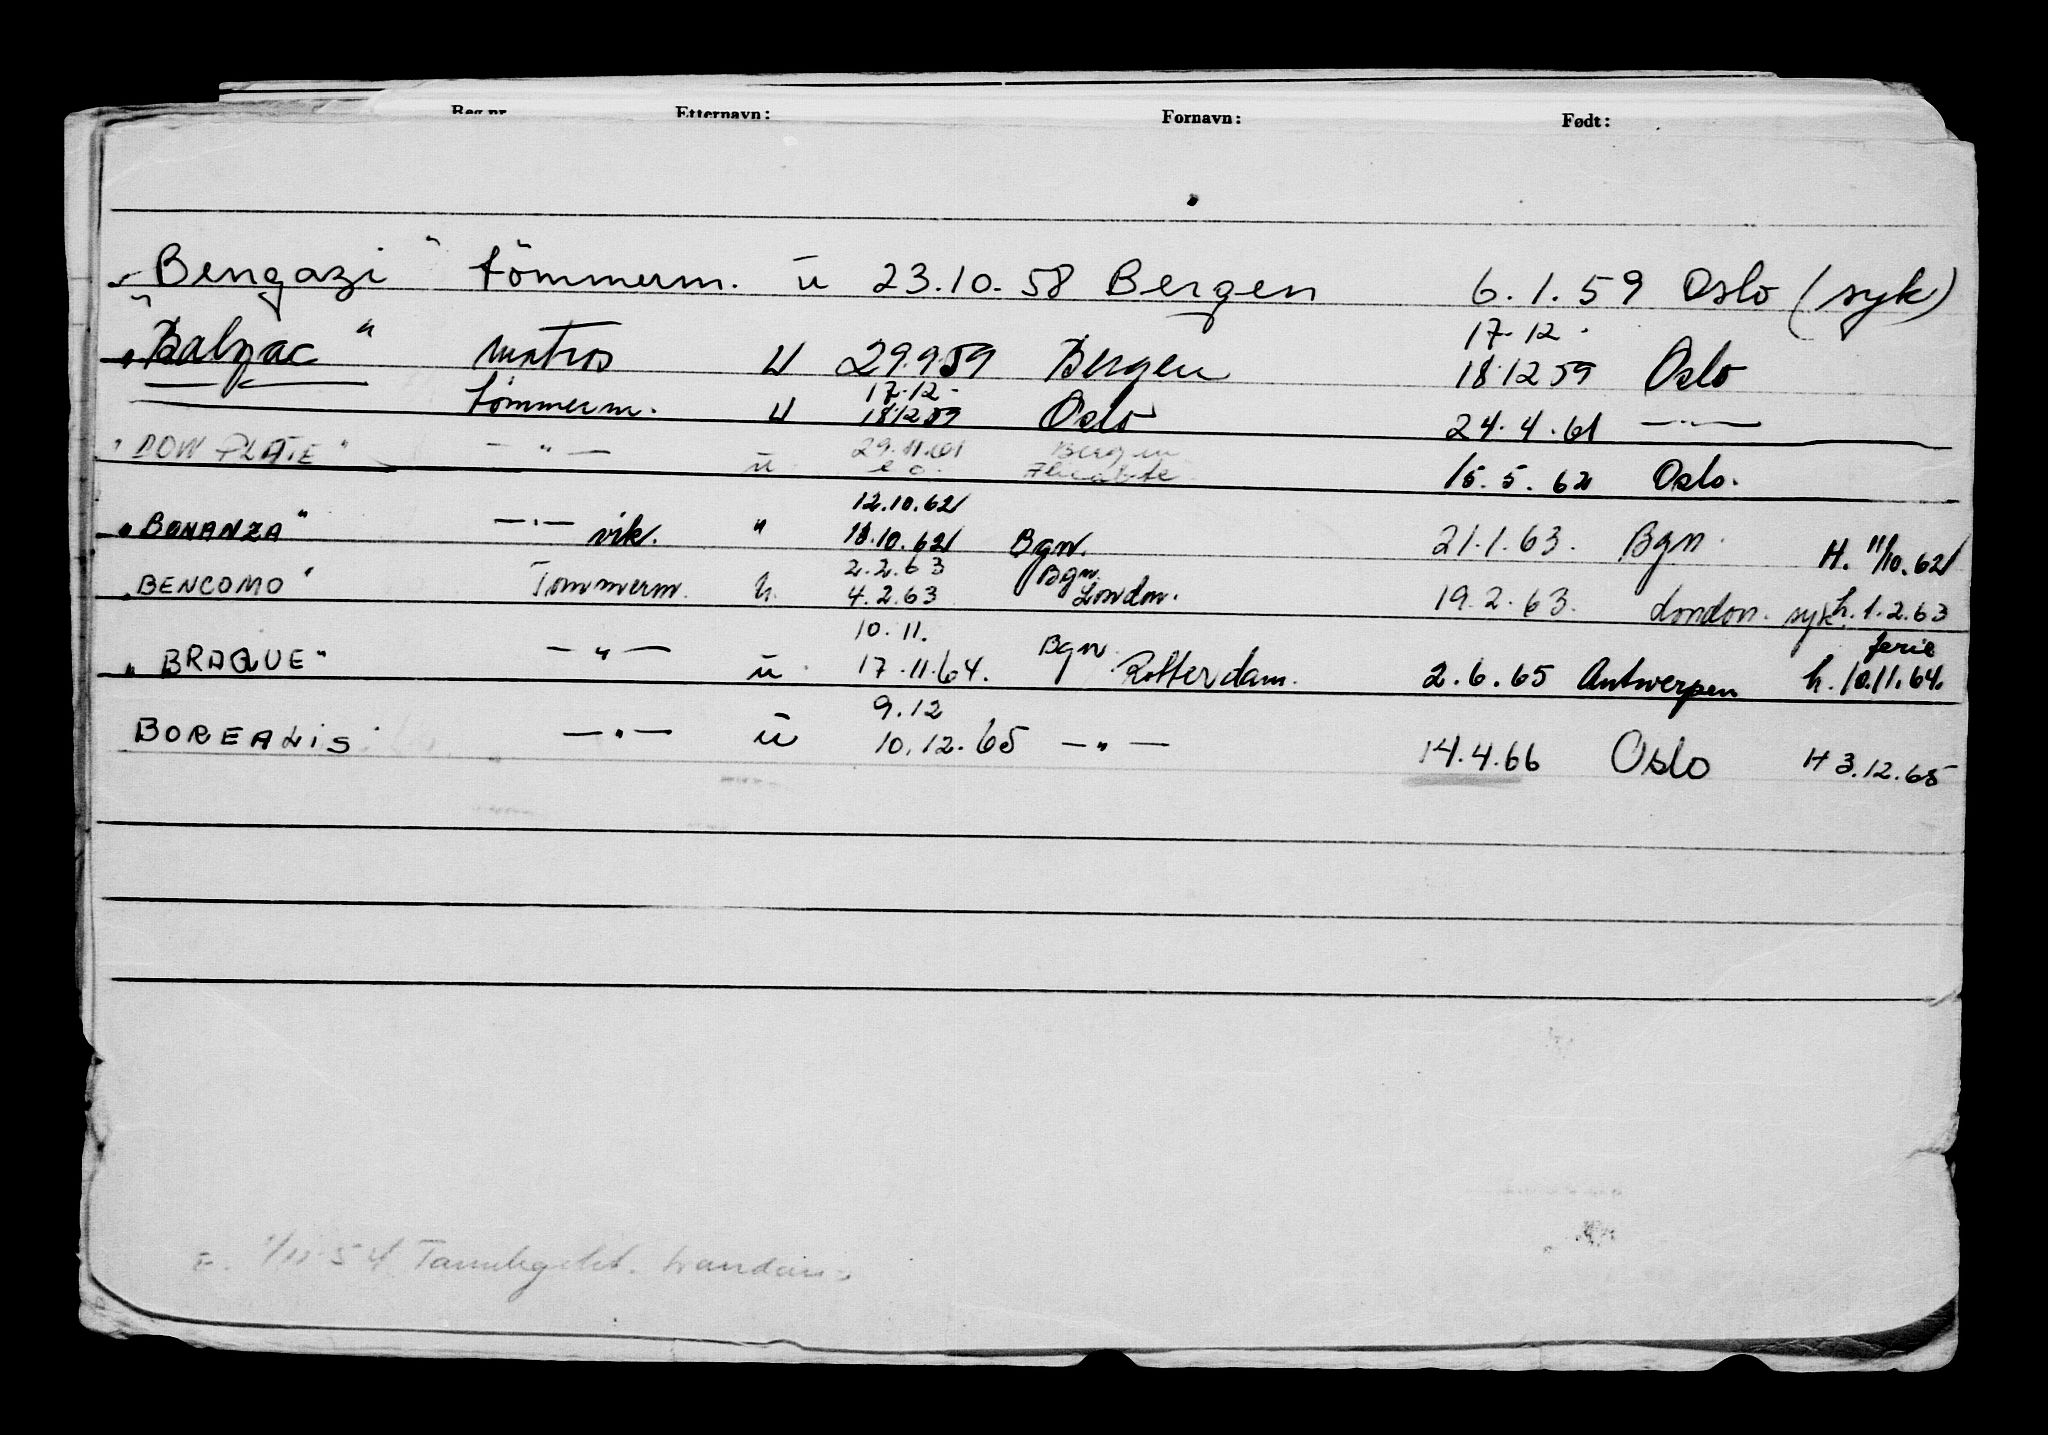 Reg.nr. Etternavn: Fornavn: Født:
"Bengazi" tömmerm. ū 23.10.58 Bergen 6.1.59 Oslo (syk)
17.12.
"Balzac" matros U 29.9.59 Bergen 18.12.59 Oslo
17.12.
tömmerm. U 18.12.59 Oslo 24.4.61 —"—
29.11.61 Bergen
"DOW PLATE" —"— ū 15.5.62 Oslo.
12.10.62
"BONANZA" —"— vik. " 18.10.62 Bgn. 21.1.63. Bgn. H. 11/10.62
2.2.63 Bgn.
"BENCOMO" Tømmerm. u. 4.2.63 London. 19.2.63. London. syk h. 1.2.63
10.11. Bgn. ferie
"BRAQUE" —"— ū 17.11.64. Rotterdam. 2.6.65 Antwerpen h. 10.11.64.
9.12
BOREALIS —"— ū 10.12.65 —"— 14.4.66 Oslo H 3.12.65
1/11-54